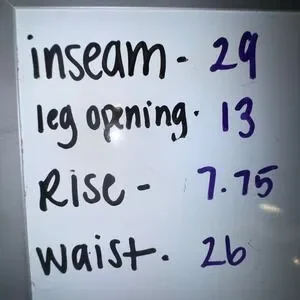 inseam - 29
leg opening. 13
Rise - 7.75
waist. 26